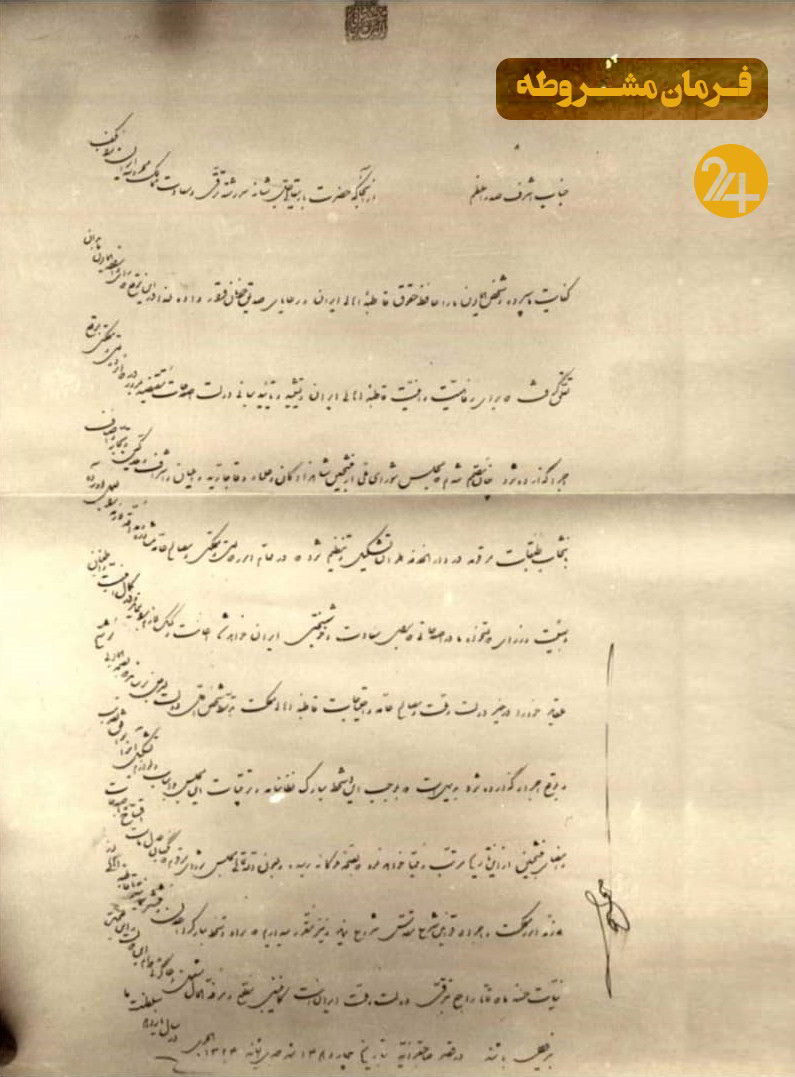 فرمان مشروطه
24
جناب اشرف صدراعظم از آنجا که حضرت باریتعالی جل شأنه سررشته ترقی و سعادت ممالک محروسه ایران را بکف
کفایت ما سپرده و شخص همایون ما را حافظ حقوق قاطبه اهالی ایران و رعایای صدیق خودمان قرار داده لهذا در این موقع که رای همایون ما بدان
تعلق گرفت که برای رفاهیت و امنیت قاطبه اهالی ایران و تشیید و تایید مبانی دولت اصلاحات مقتضیه بمرور در دوایر دولتی و مملکتی بموقع
اجرا گذارده شود چنان مصمم شدیم که مجلس شورای ملی از منتخبین شاهزادگان و علماء و قاجاریه و اعیان و اشراف و ملاکین و تجار و اصناف
بانتخاب طبقات مرقومه در دارالخلافه طهران تشکیل و تنظیم شود که در مهام امور دولتی و مملکتی و مصالح عامه مشاوره و مداقه لازمه را بعمل آورده
و بهیئت وزرای دولتخواه ما در اصلاحاتی که برای سعادت و خوشبختی ایران خواهد شد اعانت و کمک لازم را بنماید و در کمال امنیت و اطمینان
عقاید خودرا در خیر دولت و ملت و مصالح عامه و احتیاجات قاطبه اهالی مملکت بتوسط شخص اول دولت بعرض برساند که بصحه همایونی موشح
و بموقع اجرا گذارده شود بدیهی است که بموجب این دستخط مبارک نظامنامه و ترتیبات این مجلس و اسباب و لوازم تشکیل آنرا موافق تصویب
و امضای منتخبین از این تاریخ مرتب و مهیا خواهد نمود که بصحه ملوکانه رسیده و بعون الله تعالی مجلس شورای مرقوم که نگهبان عدل ماست افتتاح و باصلاحات
لازمه امور مملکت و اجراء قوانین شرع مقدس شروع نماید و نیز مقرر میداریم که سواد دستخط مبارک را اعلان و منتشر نمایند تا قاطبه اهالی از
نیات حسنه ما که تماماً راجع بترقی دولت و ملت ایران است کماینبغی مطلع و مرفه الحال مشغول دعاگوئی
باشند در قصر صاحبقرانیه بتاریخ چهاردهم ۱۳۲۴ هجری در سال یازدهم سلطنت ما